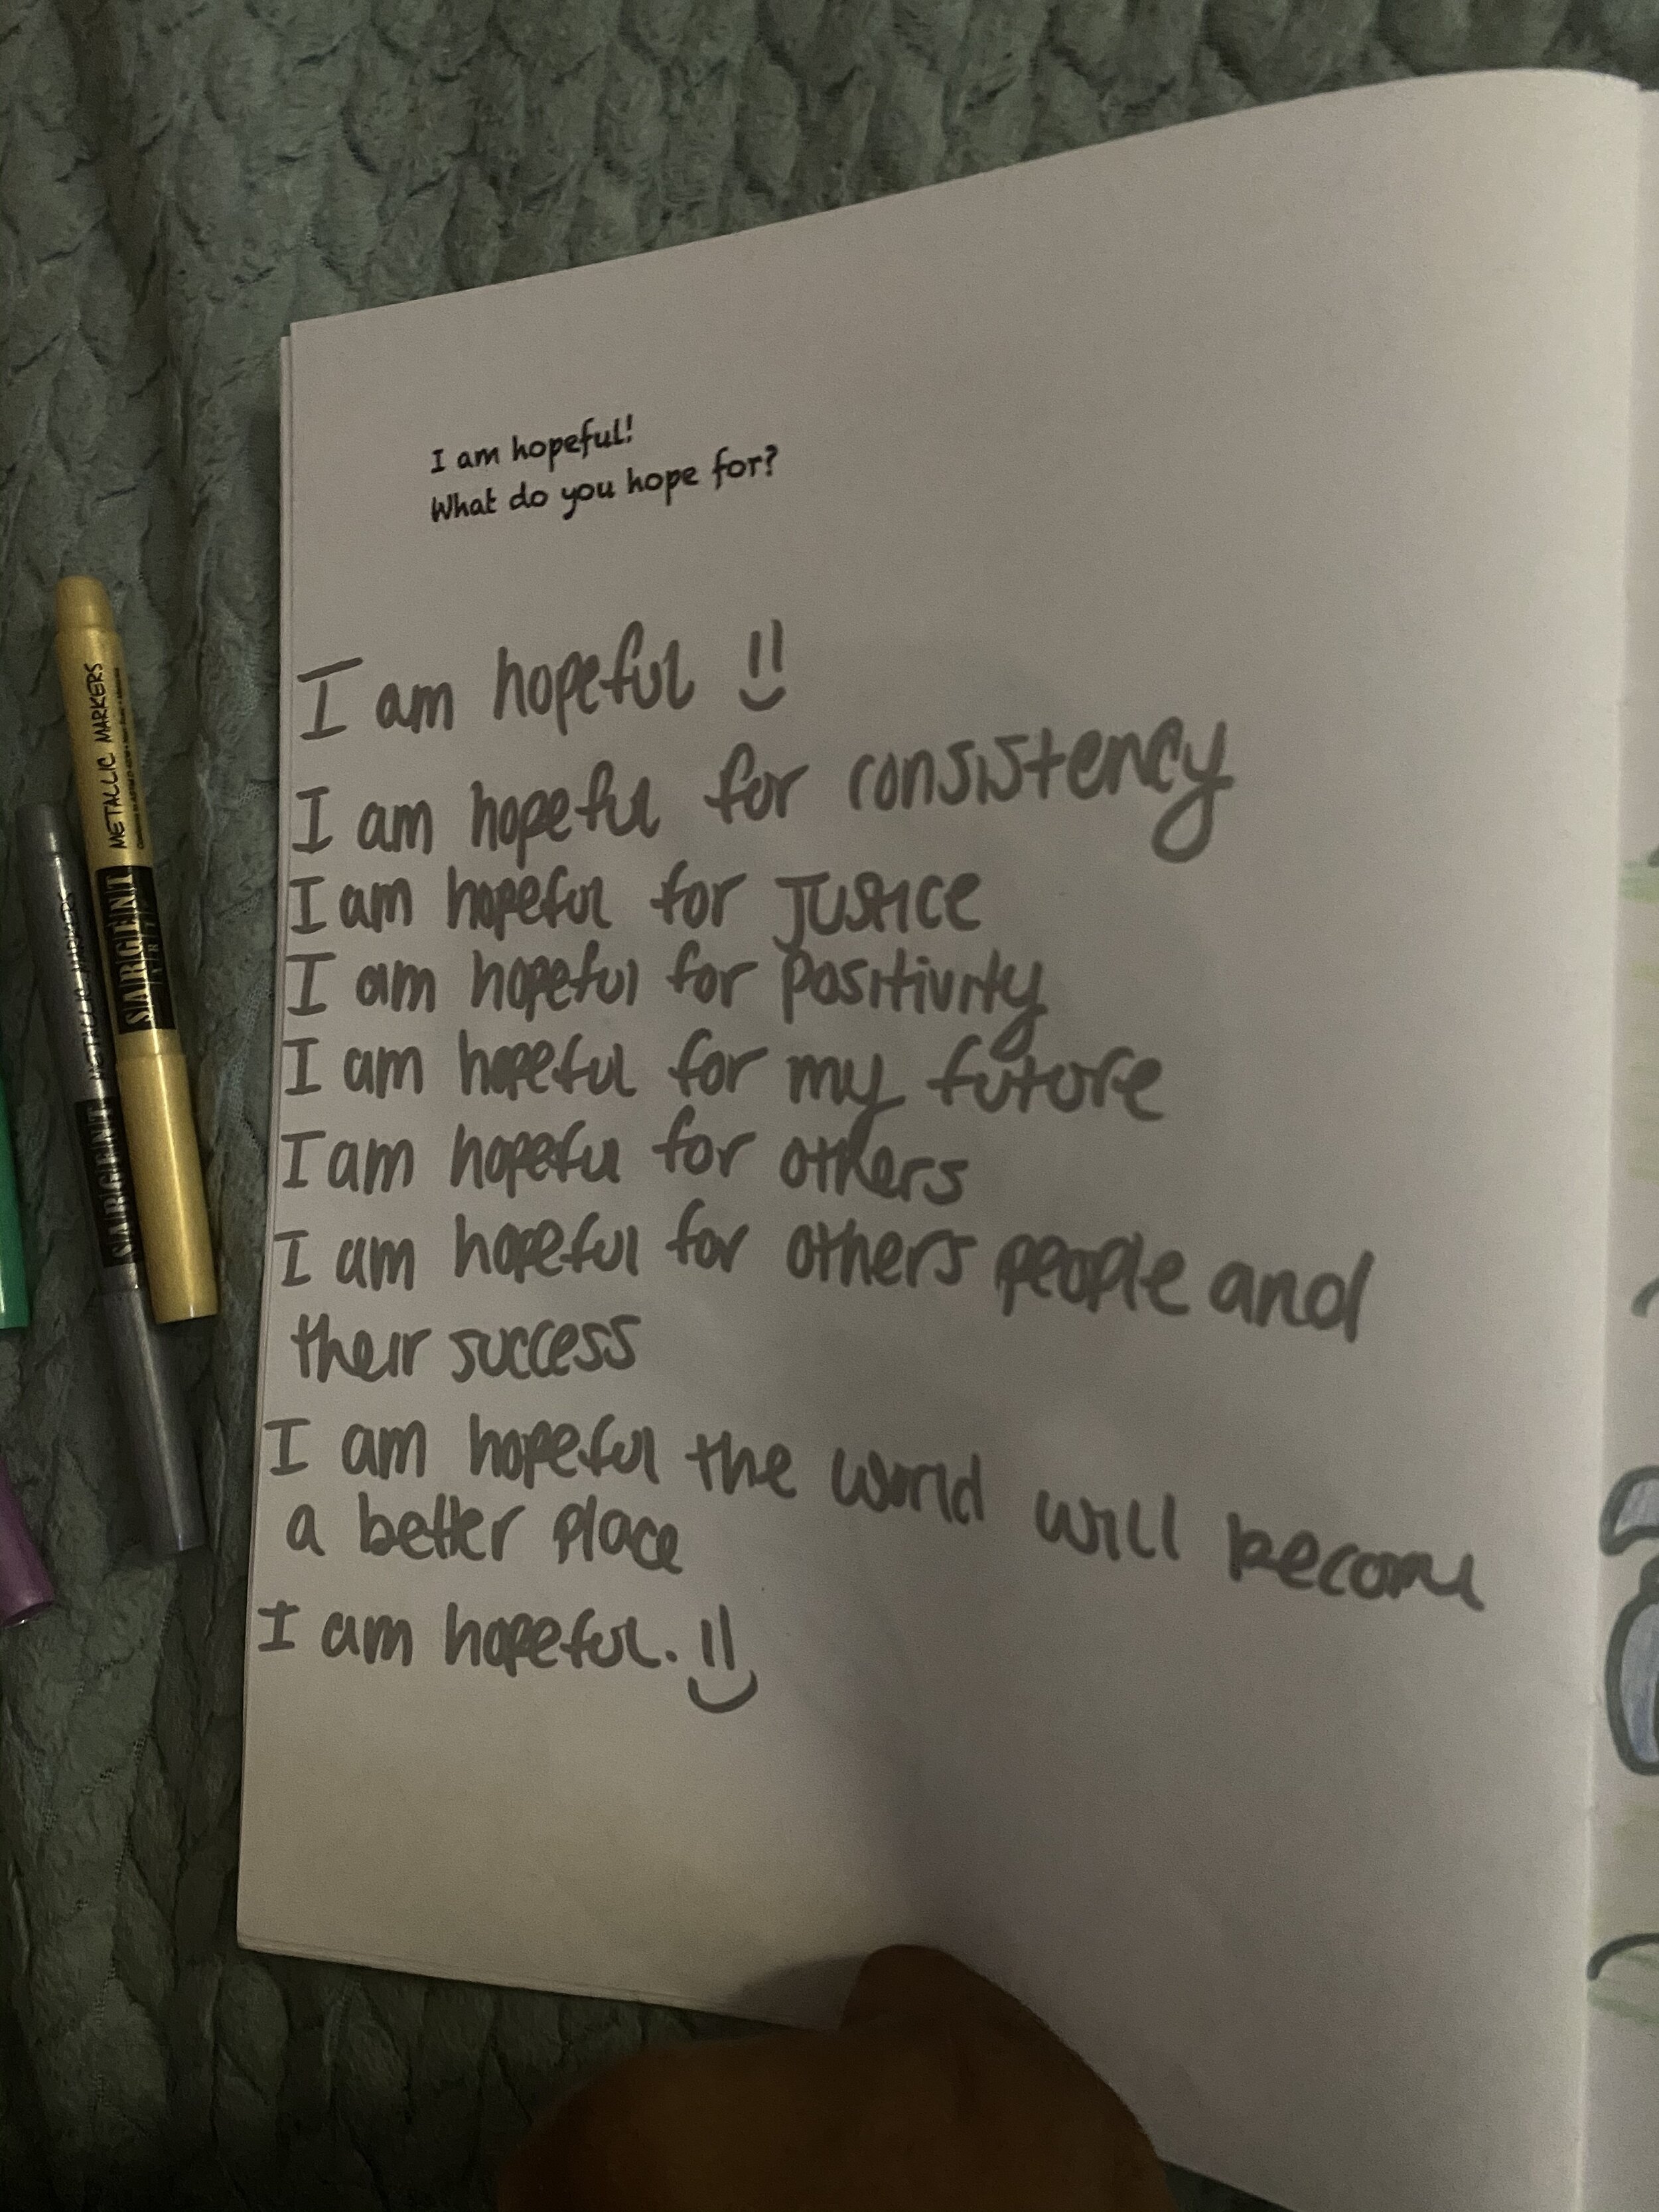 I am hopeful!
What do you hope for?
I am hopeful
I am hopeful for consistency
I am hopeful for Justice
I am hopeful for positivity
I am hopeful for my future
I am hopeful for others
I am hopeful for others people and
their success
I am hopeful the world will become
a better place
I am hopeful.
METALLIC MARKERS
SARGENT
ART
METALLIC MARKERS
SARGENT